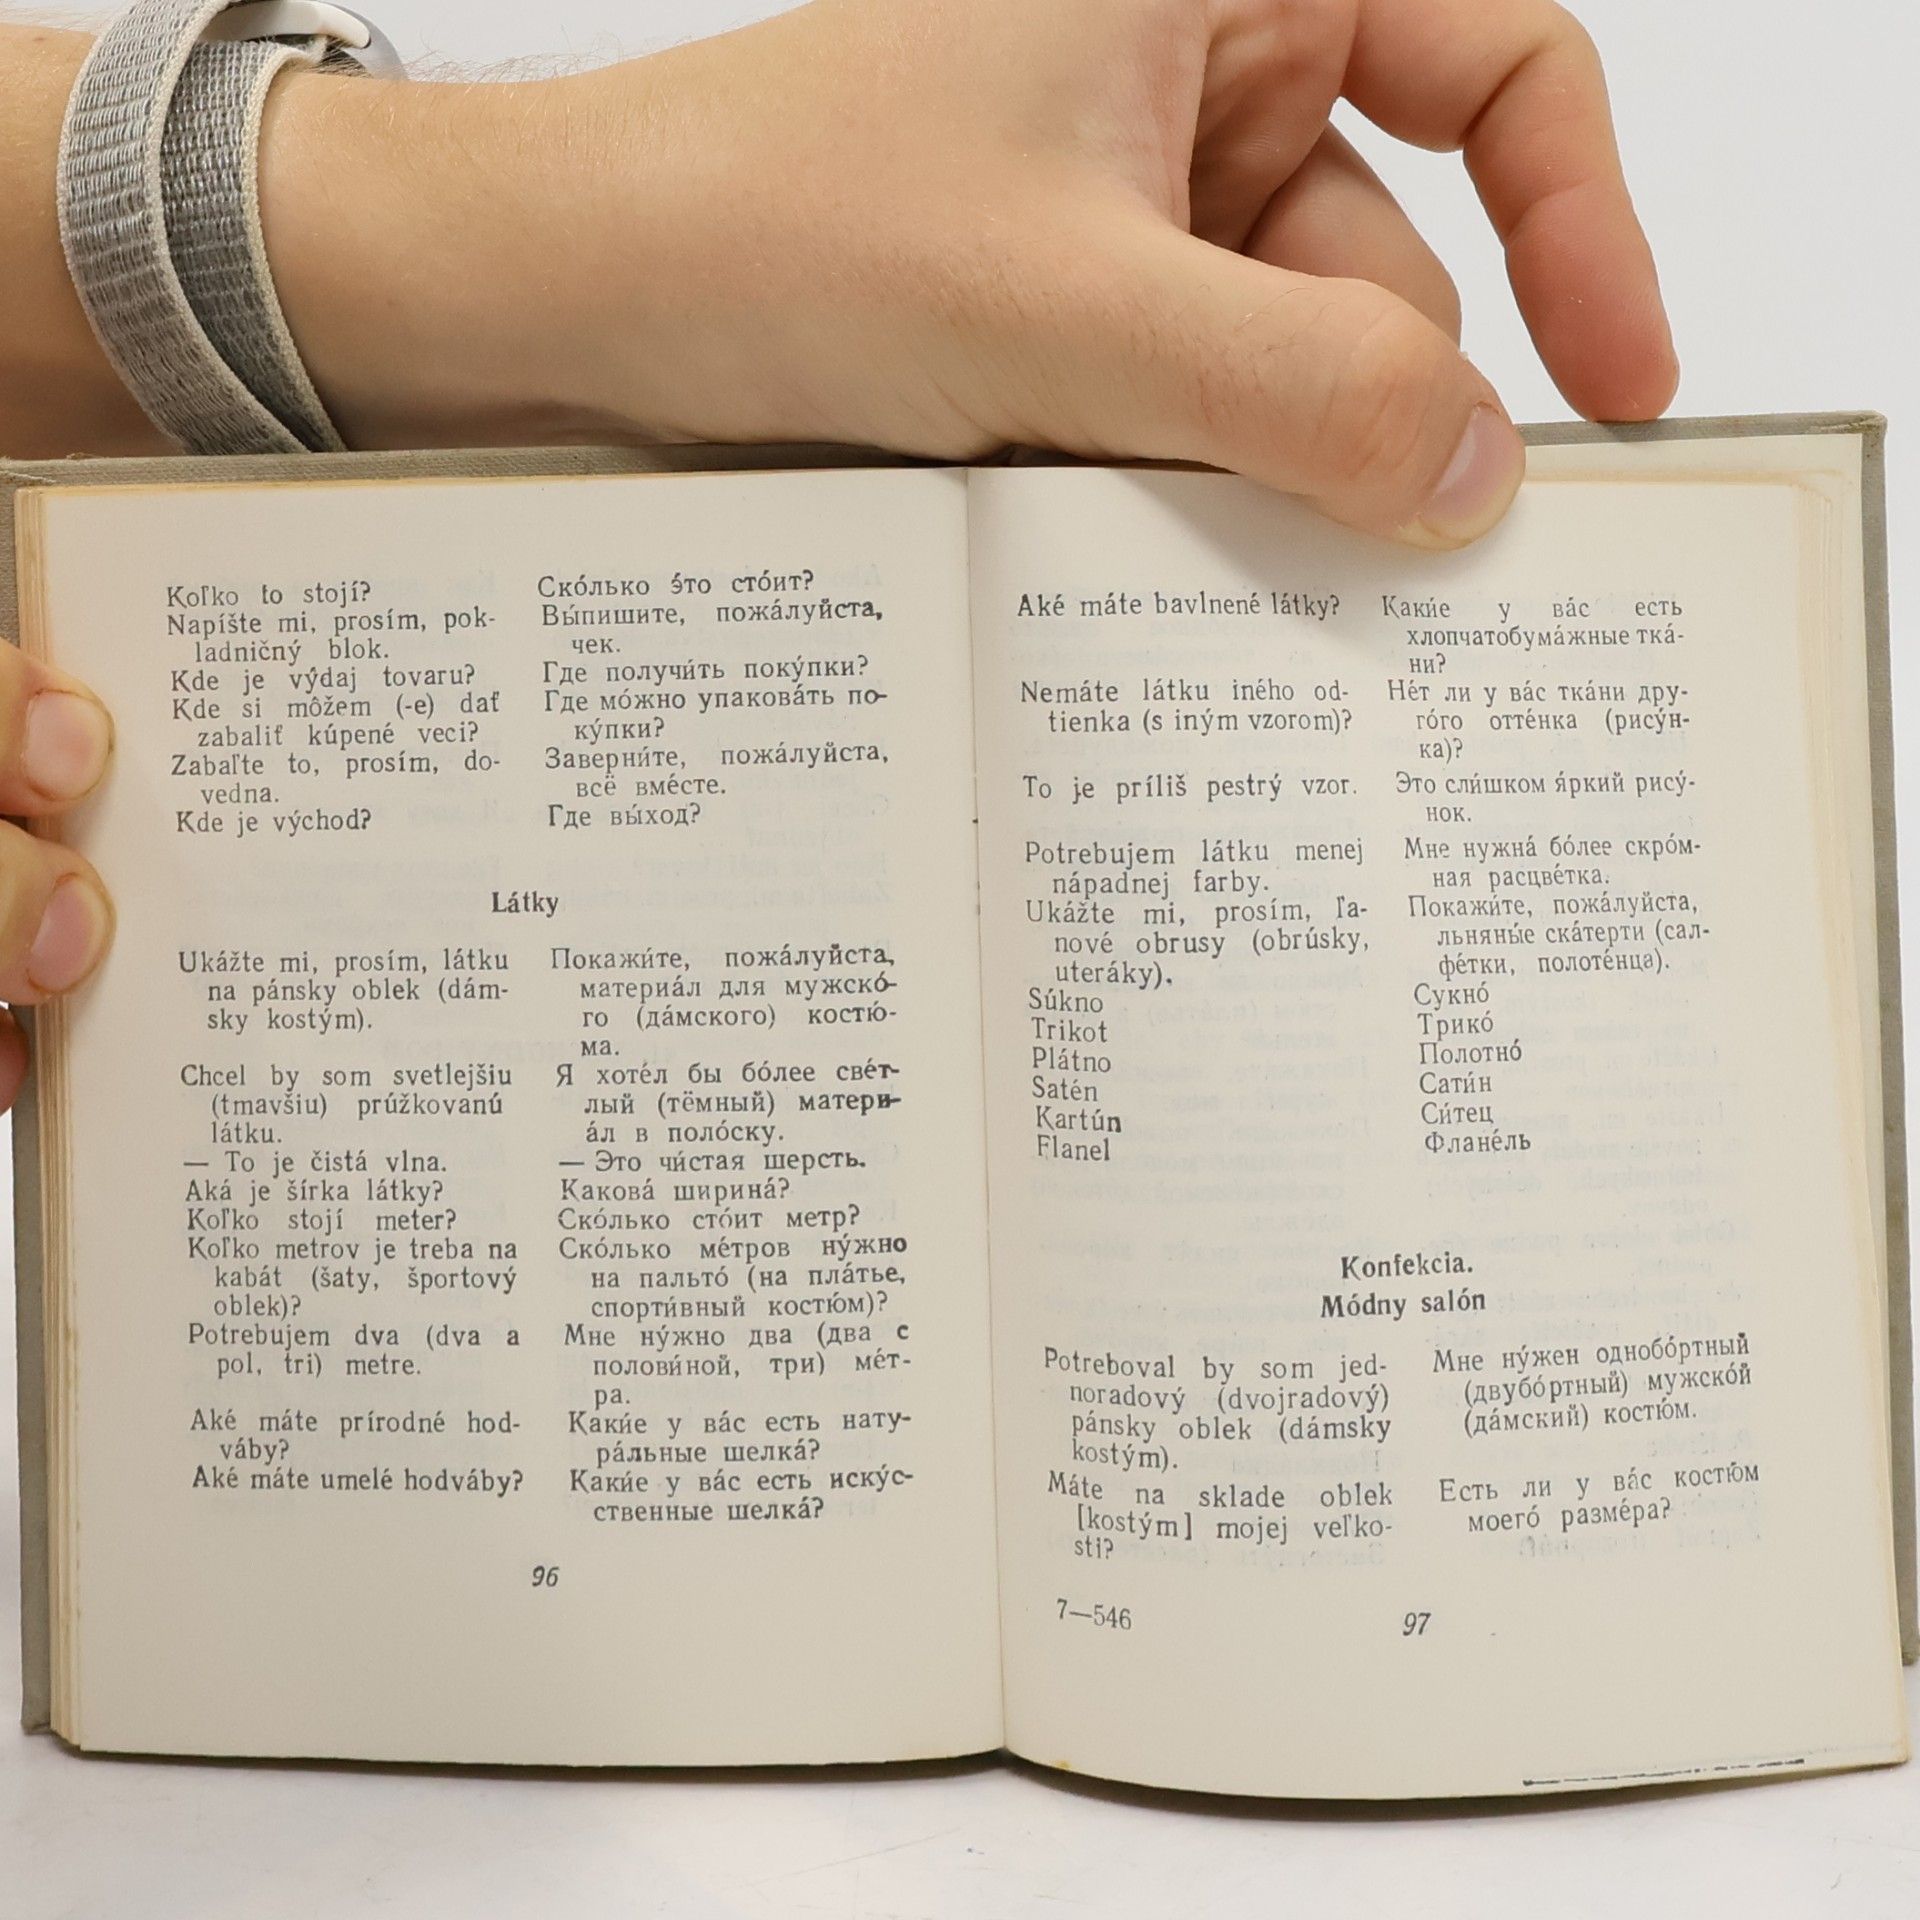 Koľko to stojí?
Napíšte mi, prosím, pok-
ladničný blok.
Kde je výdaj tovaru?
Kde si môžem (-e) dať
zabaliť kúpené veci?
Zabaľte to, prosím, do-
vedna.
Kde je východ?
Ско́лько э́то сто́ит?
Вы́пишите, пожа́луйста,
чек.
Где получи́ть поку́пки?
Где мо́жно упакова́ть по-
ку́пки?
Заверни́те, пожа́луйста,
всё вме́сте.
Где вы́ход?
Látky
Ukážte mi, prosím, látku
na pánsky oblek (dám-
sky kostým).
Chcel by som svetlejšiu
(tmavšiu) prúžkovanú
látku.
— To je čistá vlna.
Aká je šírka látky?
Koľko stojí meter?
Koľko metrov je treba na
kabát (šaty, športový
oblek)?
Potrebujem dva (dva a
pol, tri) metre.
Aké máte prírodné hod-
váby?
Aké máte umelé hodváby?
Покажи́те, пожа́луйста,
материа́л для мужско́-
го (да́мского) костю́-
ма.
Я хоте́л бы бо́лее све́т-
лый (тёмный) матери-
а́л в поло́ску.
— Это чи́стая шерсть.
Какова́ ширина́?
Ско́лько сто́ит метр?
Ско́лько ме́тров ну́жно
на пальто́ (на пла́тье,
спорти́вный костю́м)?
Мне ну́жно два (два с
полови́ной, три) ме́т-
ра.
Каки́е у ва́с есть нату-
ра́льные шелка́?
Каки́е у ва́с есть иску́с-
ственные шелка́?
96
Aké máte bavlnené látky?
Nemáte látku iného od-
tienka (s iným vzorom)?
To je príliš pestrý vzor.
Potrebujem látku menej
nápadnej farby.
Ukážte mi, prosím, ľa-
nové obrusy (obrúsky,
uteráky).
Súkno
Trikot
Plátno
Satén
Kartún
Flanel
Каки́е у ва́с есть
хлопчатобума́жные тка́-
ни?
Не́т ли у ва́с тка́ни дру-
го́го отте́нка (рису́н-
ка)?
Это сли́шком я́ркий рису́-
нок.
Мне нужна́ бо́лее скро́м-
ная расцве́тка.
Покажи́те, пожа́луйста,
льняны́е ска́терти (сал-
фе́тки, полоте́нца).
Сукно́
Трико́
Полотно́
Сати́н
Си́тец
Флане́ль
Konfekcia.
Módny salón
Potreboval by som jed-
noradový (dvojradový)
pánsky oblek (dámsky
kostým).
Máte na sklade oblek
[kostým] mojej veľko-
sti?
Мне ну́жен однобо́ртный
(двубо́ртный) мужско́й
(да́мский) костю́м.
Есть ли у ва́с костю́м
моего́ разме́ра?
7—546
97